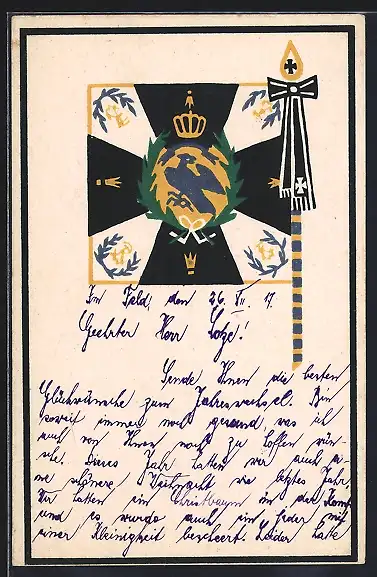 Im Feld, den 26. XII. 17.
Geehrter Herr Lotze!
Sende Ihnen die besten
Glückwünsche zum Jahreswechsel. Bin
soweit immer noch gesund, was ich
auch von Ihnen noch zu hoffen wün-
sche. Dieses Jahr hatten wir auch ei-
ne schönere Weihnacht wie letztes Jahr,
Wir hatten ein Christbaum in der Komp.
und es wurde auch ein jeder mit
einer Kleinigkeit beschert. Leider hatte